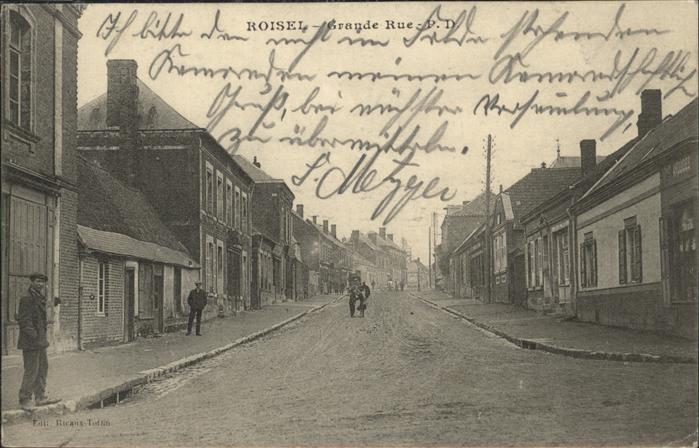 ROISEL – Grande Rue - P. D.
Ich bitte den noch im Felde stehenden
Kameraden meinen Kameradschaftli.
Gruß, bei nächster Versammlung,
zu übermitteln.
S. Metzger
Edit. Ricaux-Tottin